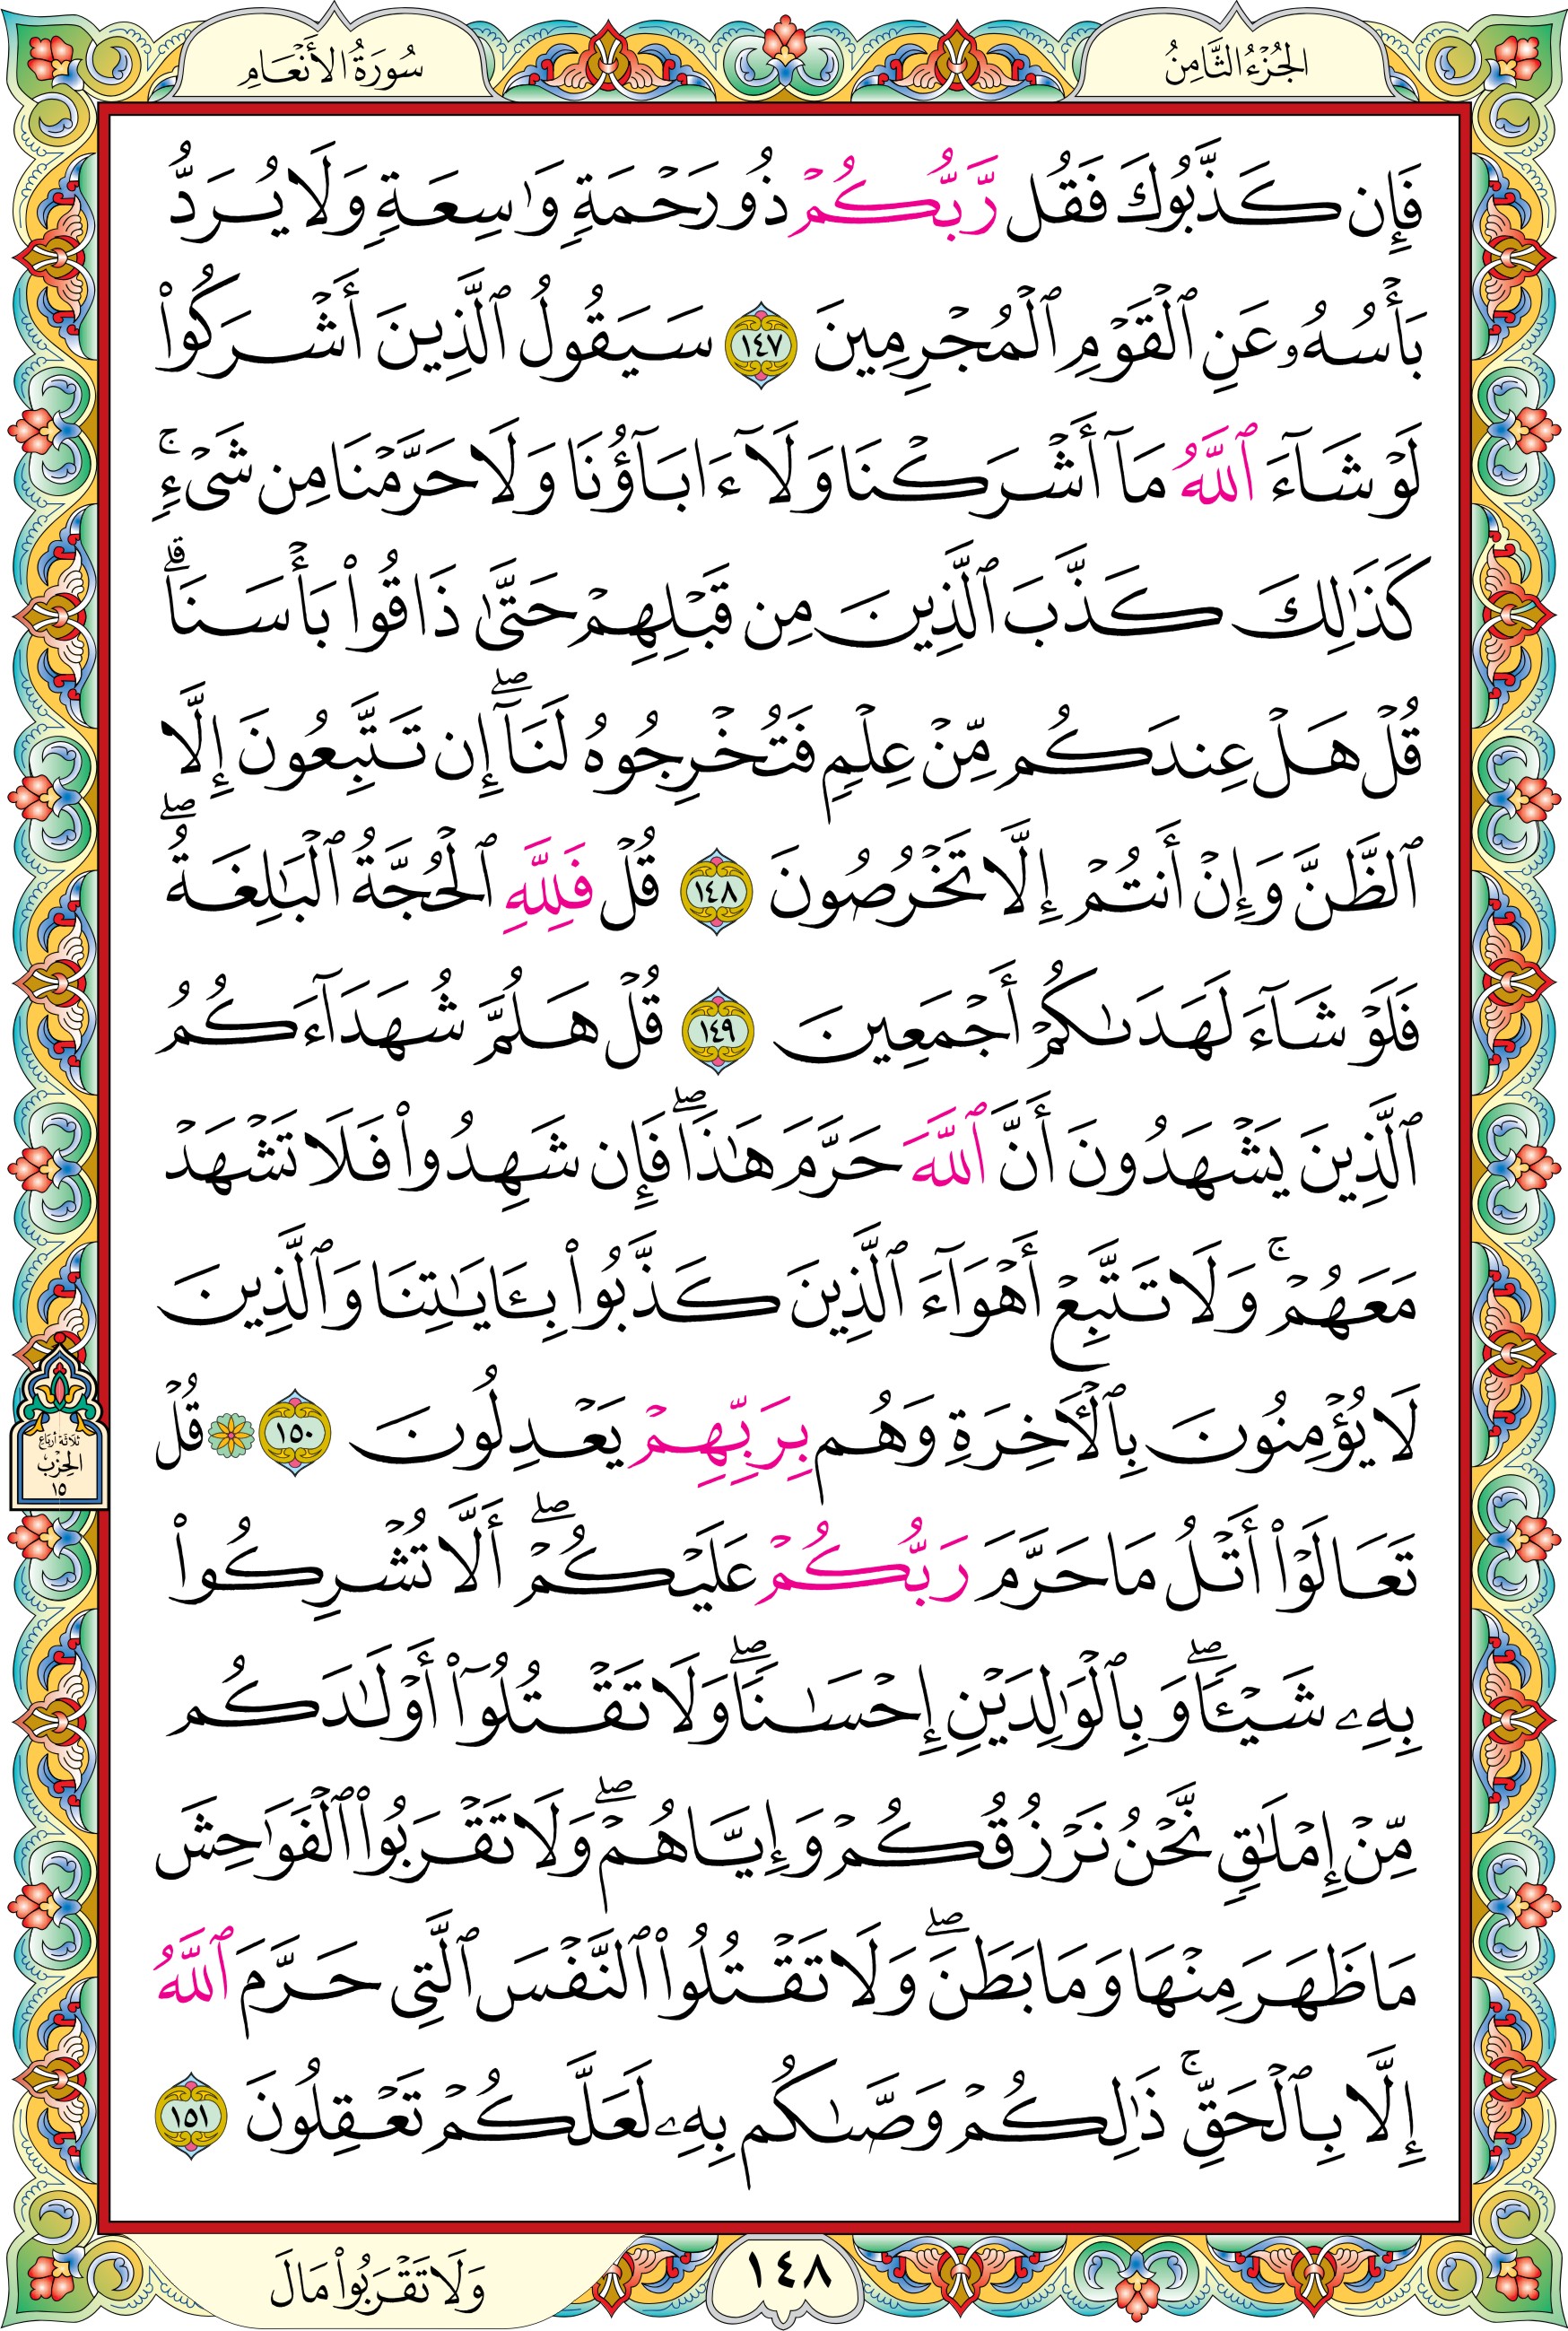 الجُزْءُ الثَّامِنُ
سُورَةُ الأَنْعَامِ
فَإِن كَذَّبُوكَ فَقُل رَّبُّكُمْ ذُو رَحْمَةٍ وَٰسِعَةٍ وَلَا يُرَدُّ
بَأْسُهُۥ عَنِ ٱلْقَوْمِ ٱلْمُجْرِمِينَ ١٤٧ سَيَقُولُ ٱلَّذِينَ أَشْرَكُوا۟
لَوْ شَآءَ ٱللَّهُ مَآ أَشْرَكْنَا وَلَآ ءَابَآؤُنَا وَلَا حَرَّمْنَا مِن شَىْءٍ ۚ
كَذَٰلِكَ كَذَّبَ ٱلَّذِينَ مِن قَبْلِهِمْ حَتَّىٰ ذَاقُوا۟ بَأْسَنَا ۗ
قُلْ هَلْ عِندَكُم مِّنْ عِلْمٍ فَتُخْرِجُوهُ لَنَآ ۖ إِن تَتَّبِعُونَ إِلَّا
ٱلظَّنَّ وَإِنْ أَنتُمْ إِلَّا تَخْرُصُونَ ١٤٨ قُلْ فَلِلَّهِ ٱلْحُجَّةُ ٱلْبَٰلِغَةُ ۖ
فَلَوْ شَآءَ لَهَدَىٰكُمْ أَجْمَعِينَ ١٤٩ قُلْ هَلُمَّ شُهَدَآءَكُمُ
ٱلَّذِينَ يَشْهَدُونَ أَنَّ ٱللَّهَ حَرَّمَ هَٰذَا ۖ فَإِن شَهِدُوا۟ فَلَا تَشْهَدْ
مَعَهُمْ ۚ وَلَا تَتَّبِعْ أَهْوَآءَ ٱلَّذِينَ كَذَّبُوا۟ بِـَٔايَٰتِنَا وَٱلَّذِينَ
لَا يُؤْمِنُونَ بِٱلْـَٔاخِرَةِ وَهُم بِرَبِّهِمْ يَعْدِلُونَ ١٥٠ ۞ قُلْ
تَعَالَوْا۟ أَتْلُ مَا حَرَّمَ رَبُّكُمْ عَلَيْكُمْ ۖ أَلَّا تُشْرِكُوا۟
بِهِۦ شَيْـًٔا ۖ وَبِٱلْوَٰلِدَيْنِ إِحْسَٰنًا ۖ وَلَا تَقْتُلُوٓا۟ أَوْلَٰدَكُم
مِّنْ إِمْلَٰقٍ نَّحْنُ نَرْزُقُكُمْ وَإِيَّاهُمْ ۖ وَلَا تَقْرَبُوا۟ ٱلْفَوَٰحِشَ
مَا ظَهَرَ مِنْهَا وَمَا بَطَنَ ۖ وَلَا تَقْتُلُوا۟ ٱلنَّفْسَ ٱلَّتِى حَرَّمَ ٱللَّهُ
إِلَّا بِٱلْحَقِّ ۚ ذَٰلِكُمْ وَصَّىٰكُم بِهِۦ لَعَلَّكُمْ تَعْقِلُونَ ١٥١
ثلاثة أرباع
الحِزْب
١٥
١٤٨
وَلَا تَقْرَبُوا۟ مَالَ